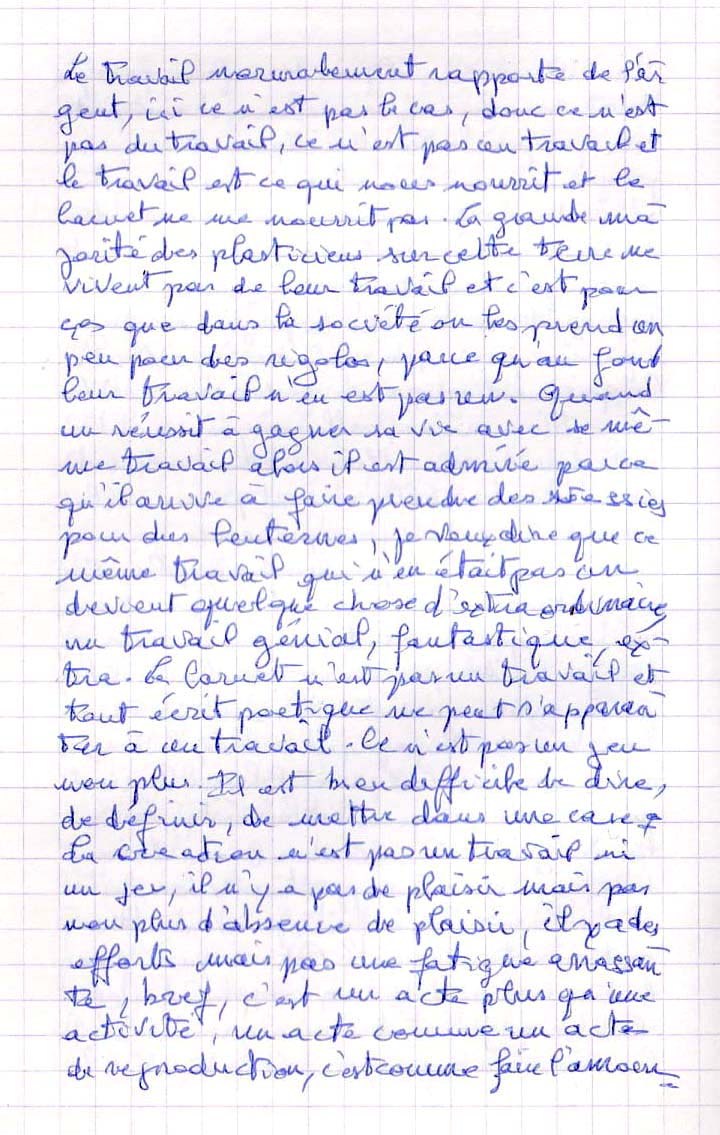 Le travail normalement rapporte de l'ar
gent, ici ce n'est pas le cas, donc ce n'est
pas du travail, ce n'est pas un travail et
le travail est ce qui nous nourrit et le
carnet ne me nourrit pas. La grande ma
jorité des plasticiens sur cette terre ne
vivent pas de leur travail et c'est pour
ças que dans la société on les prend un
peu pour des rigolos, parce qu'au fond
leur travail n'en est pas un. Quand
un réussit à gagner sa vie avec ce mê-
me travail alors il est admiré parce
qu'il arrive à faire prendre des vessies
pour des lenternes, je veux dire que ce
même travail qui n'en était pas un
devient quelque chose d'extraordinaire,
un travail génial, fantastique, ex-
tra. Le Carnet n'est pas un travail et
tout écrit poetique ne peut s'apparen
ter à un travail. Ce n'est pas un jeu
non plus. Il est bien difficile de dire,
de définir, de mettre dans une case
La création n'est pas un travail ni
un jeu, il n'y a pas de plaisir mais pas
non plus d'absence de plaisir, il y a des
efforts mais pas une fatigue arrassan
te, bref, c'est un acte plus qu'une
activité, un acte comme un acte
de reproduction, c'est comme faire l'amour